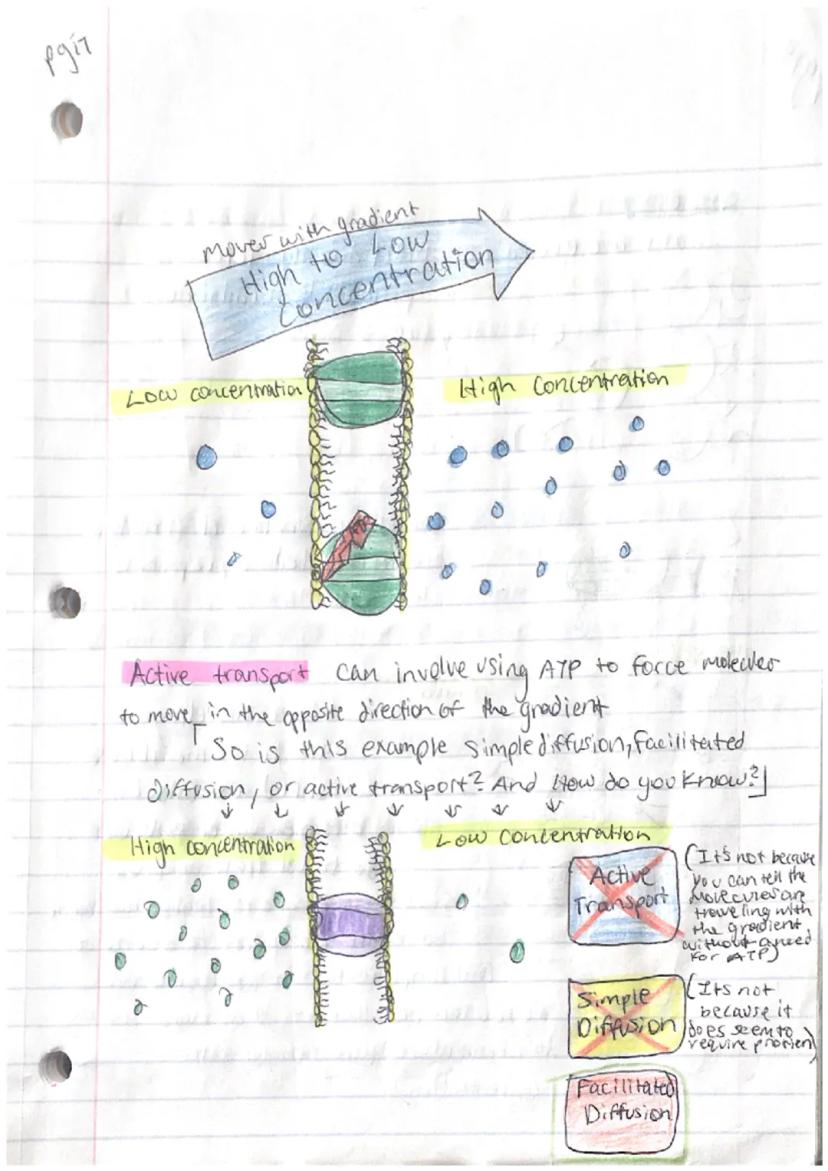 pg 17
moves with gradient
High to Low
Concentration
Low concentration
High Concentration
Active transport can involve using ATP to force molecules
to move in the opposite direction of the gradient
So is this example simple diffusion, facilitated
diffusion, or active transport? And How do you know?
High concentration
Low Concentration
Active
Transport
(It's not because
you can tell the
molecules are
traveling with
the gradient
without a need
for ATP)
Simple
Diffusion
(Its not
because it
does seem to
require protien)
Facilitated
Diffusion